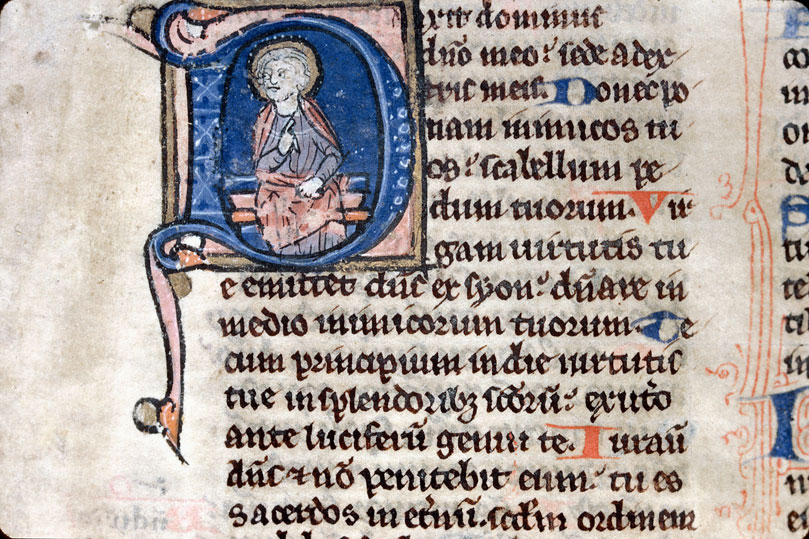 Dixit dominus
dn̄o meo: sede a dex
tris meis. Donec po
nam inimicos tu
os: scabellum pe
dum tuorum. Vir
gam uirtutis tu
e emittet dn̄s ex syon: dn̄are in
medio inimicorum tuorum. Te
cum principium in die uirtutis
tue in splendoribꝫ sc̄orum: ex ut̓o
ante luciferū genui te. Iurauit
dn̄s ⁊ nō penitebit eum: tu es
sacerdos in et̓nū. sc̄dm ordinem